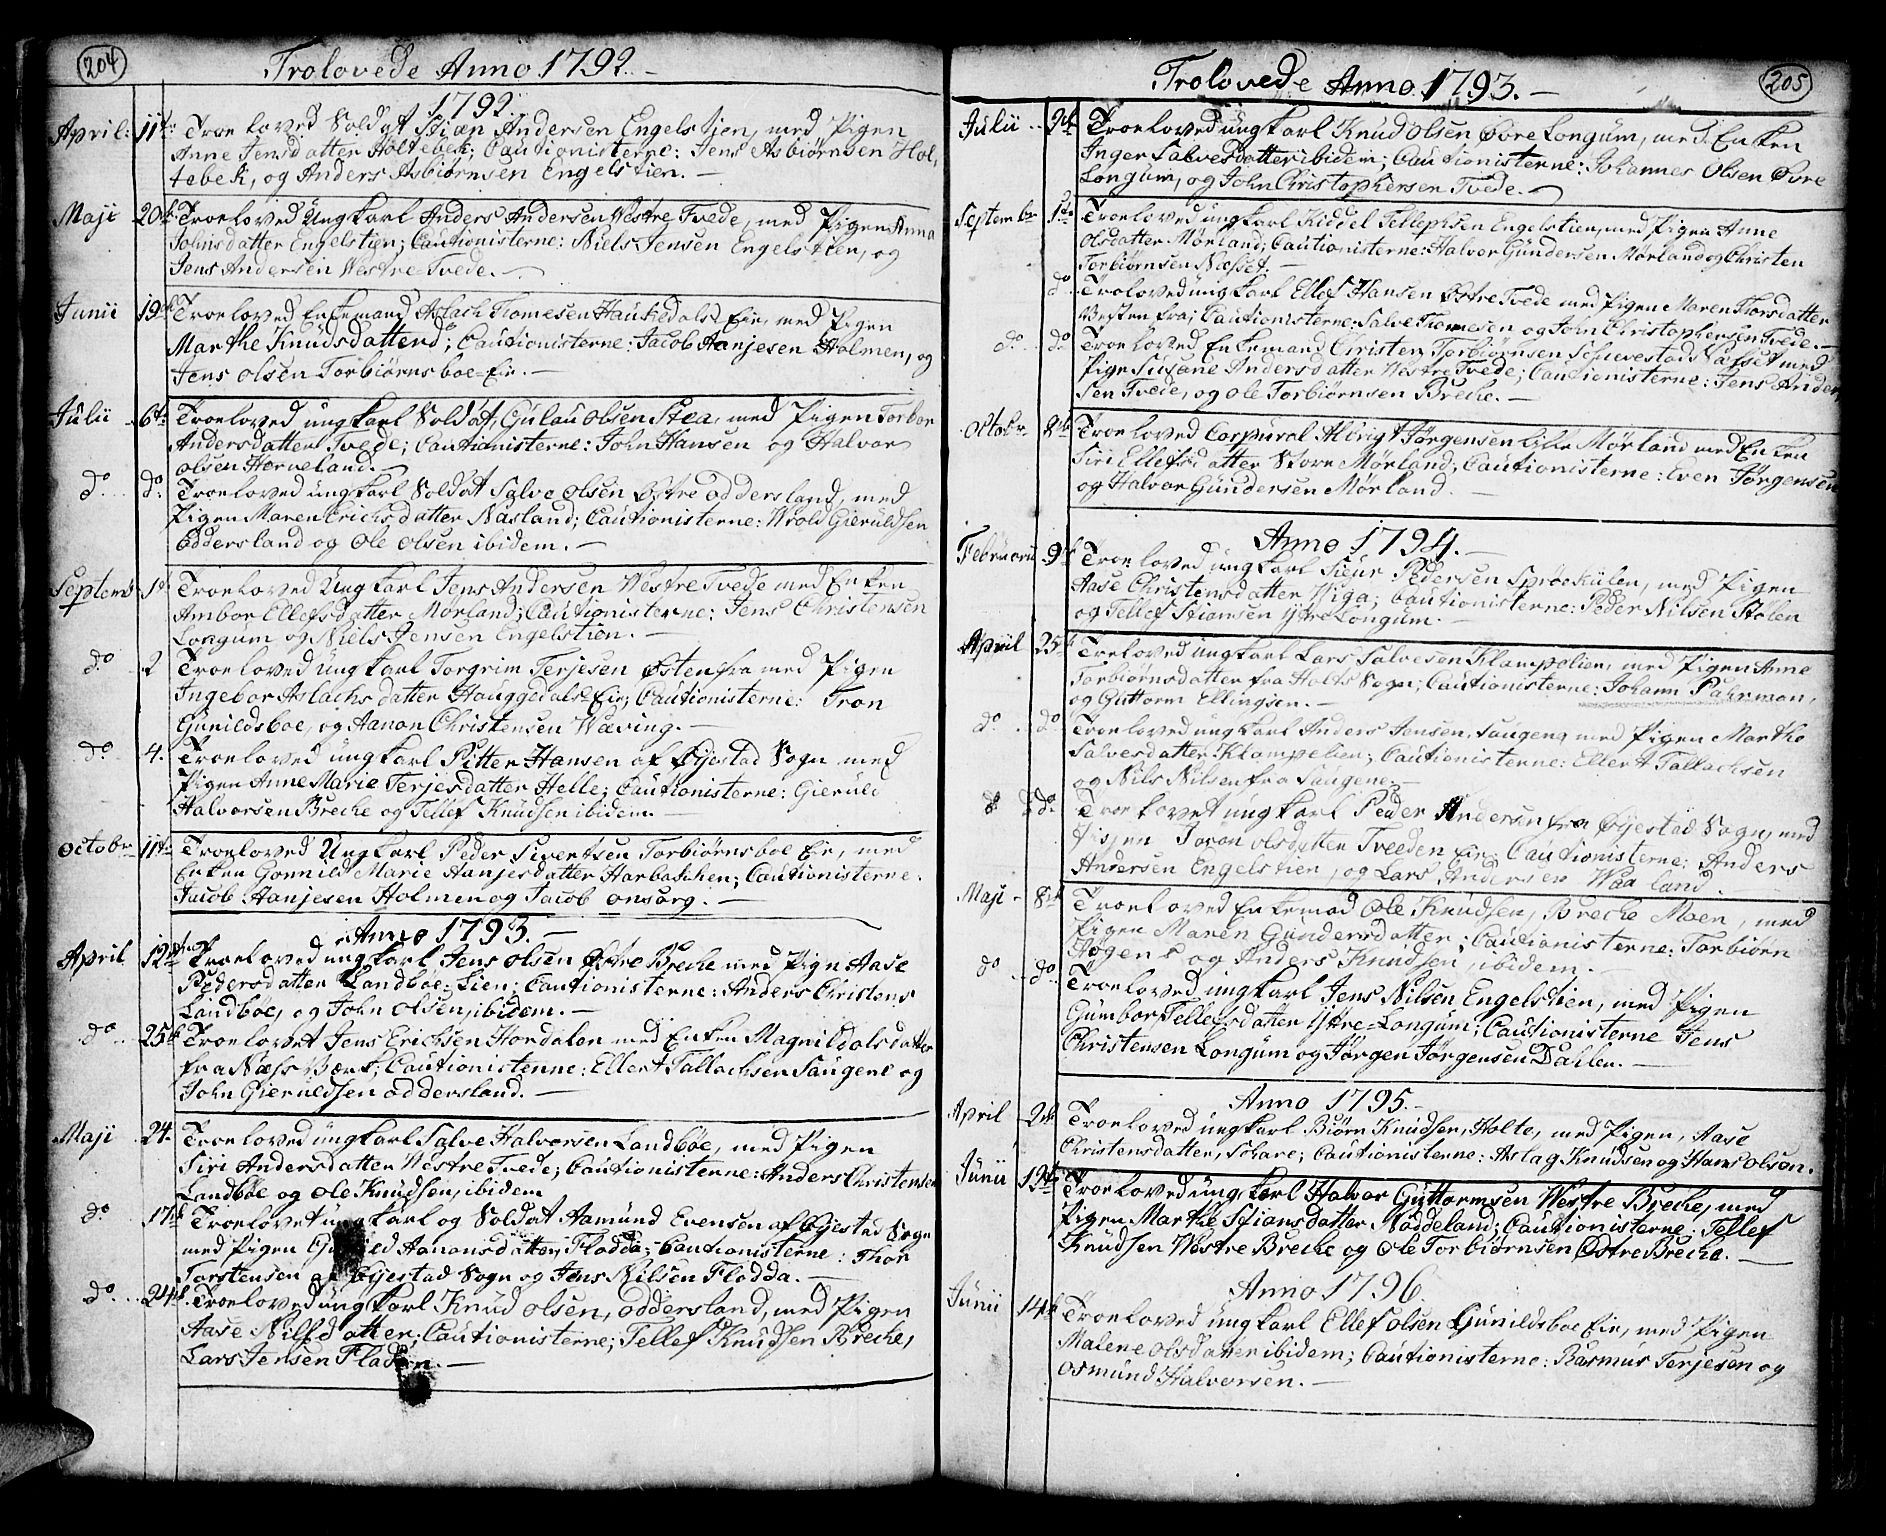 204
Trolovede Anno 1792. —
1792.
April. 11te Troeloved Soldat Stian Andersen Engelstien, med Pigen
Anne Jensdatter Holtebek; Cautionisterne: Jens Asbiørnsen Hol,
tebek, og Anders Asbiørnsen Engelstien. —
Maji 20de Troeloved Ungkarl Anders Andersen Westre Tvede, med Pigen Anna
Johnsdatter Engelstien; Cautionisterne: Niels Jensen Engelstien, og
Jens Andersen Westre Tvede. —
Junii 19de Troeloved Enkemand Aslach Thomesen Haukedals Eie, med Pigen
Marthe Knudsdatter do; Cautionisterne: Jacob Aanjesen Holmen, og
Jens Olsen Torbiørnsboe-Eie. —
Julii 6te Troeloved ungkarl Soldat, Gulau Olsen Stea, med Pigen Torbor
Andersdatter Tvede; Cautionisterne: John Hansen og Halvor
Olsen Horneland. —
do. do. Troeloved ungkarl Soldat Salve Olsen Østre Oddersland, med
Pigen Maren Erichsdatter Nasland; Cautionisterne: Wrold Gieruldsen
Oddersland og Ole Olsen ibidem. —
Septemb 1ste Troeloved Ungkarl Jens Andersen Westre Tvede med Enken
Ambor Ellefsdatter Mørland; Cautionisterne: Jens Christensen
Longum og Niels Jensen Engelstien. —
do 2 Troeloved Ungkarl Torgrim Terjesen Østenfra med Pigen
Ingebor Aslachsdatter Hauggedals Eie; Cautionisterne: Tron
Gunildsboe, og Aanon Christensen Waving. —
do. 4. Troeloved ungkarl Pitter Hansen af Øjestad Sogn med
Pigen Anne Marie Terjesdatter Helle; Cautionisterne: Gieruld
Halvorsen Breche og Tellef Knudsen ibidem. —
Octobr 11te Troeloved Ungkarl Peder Sivertsen Torbiørnsboe Eie, med
Enken Gonnild Marie Aanjersdatter Harbakken; Cautionisterne:
Jacob Aanjesen Holmen og Jacob Onsorg. —
Anno 1793. —
April 12te Troeloved ungkarl Jens Olsen Østre Breche med Pign Aase
Pedersdatter Landbøe-Lien; Cautionisterne: Anders Christens
Landbøe, og John Olsen, ibidem. —
do .. 25de Troelovet Jens Erichsen Hordalen med Enken Magnild Olsdatter
fra Næss Værk; Cautionisterne: Ellert Tallachsen Saugene og
John Gieruldsen Oddersland. —
Maji 24. Troeloved ungkarl Salve Halvorsen Landbøe, med Pigen
Siri Andersdatter Westre Tvede; Cautionisterne: Anders Christensen
Landbøe og Ole Knudsen, ibidem
do. 17de Troelovet ungkarl og Soldat Aamund Evensen af Øjestad Sogn
med Pigen Aanonsdatter, Flodda; Cautionisterne: Thor
Torstensen af Øijestad Sogn og Jens Nilsen Flodda. —
do. 24de Troeloved ungkarl Knud Olsen, Oddersland, med Pigen
Aase Nilsdatter; Cautionisterne; Tellef Knudsen Breche,
Lars Jensen Fladen. —
205
Trolovede Anno 1793. —
Julii .. 2de Troeloved ungkarl Knud Olsen Øvre Longum, med Enken
Inger Salvesdatter ibidem; Cautionisterne: Johannes Olsen Øvre
Longum, og John Christophersen Tvede. —
Septembr 1ste Troeloved ungkarl Kiddel Tellephsen Engelstien, med Pigen Anne
Olsdatter Mørland; Cautionisterne: Halvor Gundersen Mørland og Christen
Torbiørnsen Næsset. —
do. Troloved ungkarl Ellef Hansen Østre Tvede med Pigen Maren Thorsdatter
Vesten fra; Cautionisterne: Salve Thomesen og John Christophersen Tvede. —
do. do Troeloved Enkemand Christen Torbiørnsen Schuevestad Næsset med
Pige Susane Andersdatter Westre Tvede; Cautionisterne: Jens Ander,
sen Tvede, og Ole Torbiørnsen Breche. —
Octobr. 8de Troeloved Corporal Albrigt Jørgensen Lille Mørland med Enken
Siri Ellefsdatter Store Mørland; Cautionisterne: Even Jørgensen
og Halvor Gundersen Mørland. —
Anno 1794. —
Februarii 9de Troeloved ungkarl Siur Pedersen Sprøekulen, med Pigen
Aase Christensdatter Viga; Cautionisterne: Peder Nilsen Stolen
og Tellef Stiansen Ytre Longum. —
April 25de Troeloved ungkarl Lars Salvesen Klampelien, med Pigen Anne
Torbiørnsdatter fra Holts Sogn; Cautionisterne: Johann Pahrman,
og Guttorm Ellingsen. —
do . do Troeloved ungkarl Anders Jensen, Saugene med Pigen Marthe
Salvesdatter Klampelien; Cautionisterne: Ellert Tallachsen
og Nils Nilsen fra Saugene. —
do do. Troelovet ungkarl Peder Andersen fra Øijestad Sogn, med
Pigen Joran Olsdatter Tveeden Eie; Cautionisterne: Anders
Andersen Engelstien, og Lars Andersen Waaland.
Maji - 8de Troeloved Enkemad Ole Knudsen, Breche Moen, med
Pigen Maren Gundersdatter; Cautionisterne: Torbiørn
og Anders Knudsen, ibidem. —
do .. do. Troeloved ungkarl Jens Nilsen Engelstien, med Pigen
Gumbor Tellefsdatter Ytre-Longum; Cautionisterne Jens
Christensen Longum og Jørgen Jørgensen Dahlen. —
Anno 1795. —
April - 2de Troeloved ungkarl Biørn Knudsen, Holte, med Pigen, Aase
Christensdatter, Schare; Cautionisterne: Aslag Knudsen og Hans Olsen.
Junii 12te Troeloved ungkarl Halvor Guttormsen Westre Breche, med
Pigen Marthe Stiansdatter Noddeland; Cautionisterne: Tellef
Knudsen Westre Breche og Ole Torbiørnsen Østre Breche. —
Anno 1796.
Junii 14de Troeloved ungkarl Ellef Olsen Gunildsboe Eie, med Pigen
Malene Olsdatter ibidem; Cautionisterne: Rasmus Terjesen og
Osmund Halvorsen. —